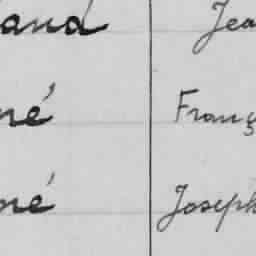 and Jea
né Franç
né Joseph